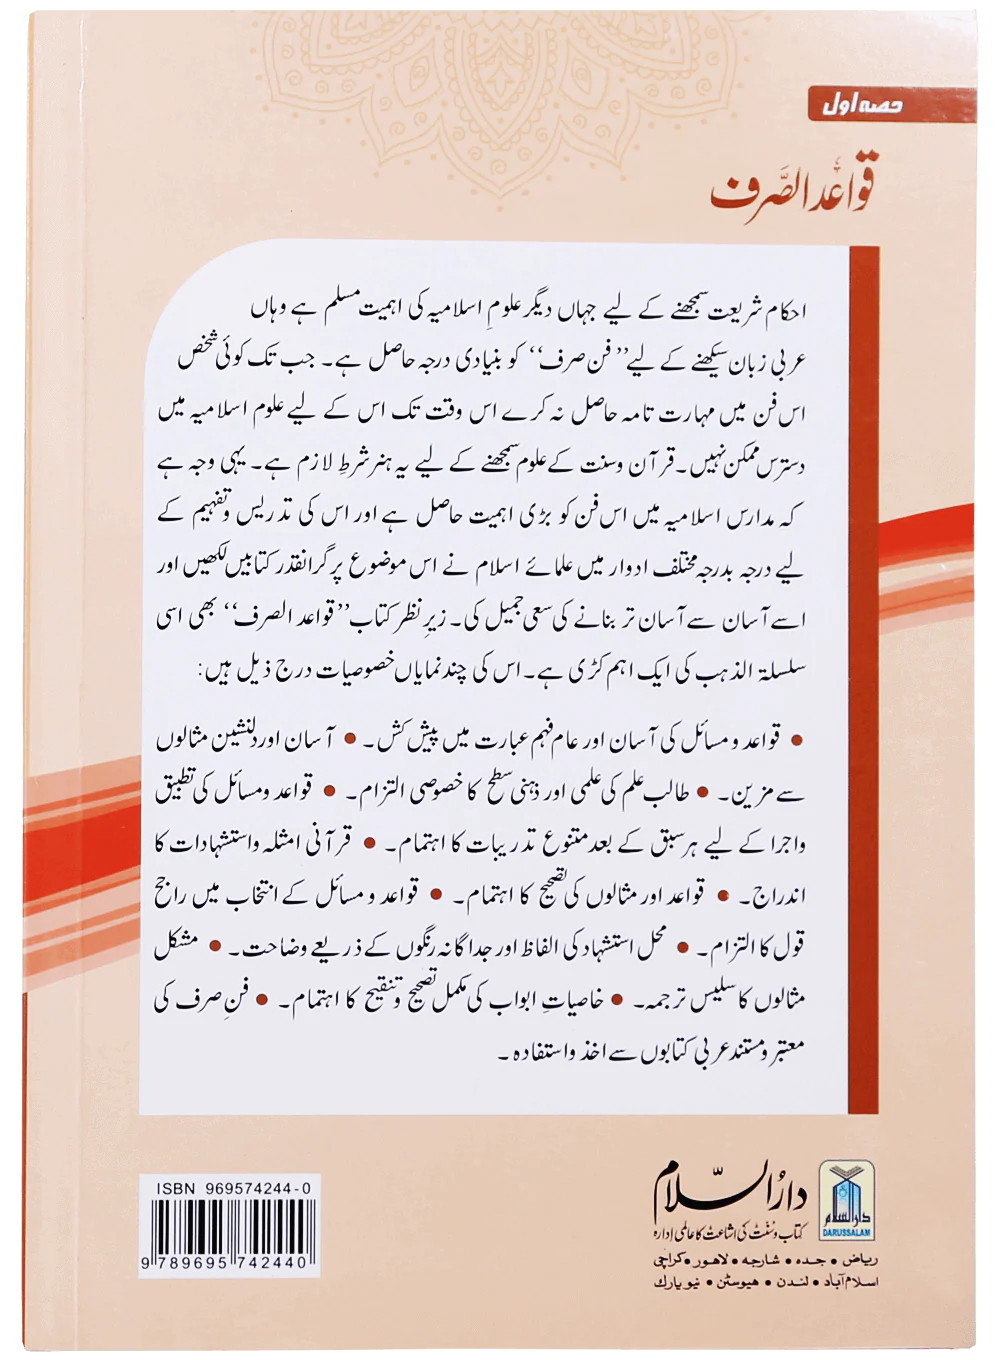 حصہ اول
قواعد الصَّرف
احکام شریعت سمجھنے کے لیے جہاں دیگر علومِ اسلامیہ کی اہمیت مسلم ہے وہاں
عربی زبان سیکھنے کے لیے ”فن صرف“ کو بنیادی درجہ حاصل ہے۔ جب تک کوئی شخص
اس فن میں مہارت تامہ حاصل نہ کرے اس وقت تک اس کے لیے علوم اسلامیہ میں
دسترس ممکن نہیں۔ قرآن وسنت کے علوم سمجھنے کے لیے یہ ہنر شرطِ لازم ہے۔ یہی وجہ ہے
کہ مدارس اسلامیہ میں اس فن کو بڑی اہمیت حاصل ہے اور اس کی تدریس وتفہیم کے
لیے درجہ بدرجہ مختلف ادوار میں علمائے اسلام نے اس موضوع پر گرانقدر کتابیں لکھیں اور
اسے آسان سے آسان تر بنانے کی سعی جمیل کی۔ زیرِ نظر کتاب ”قواعد الصرف“ بھی اسی
سلسلۃ الذہب کی ایک اہم کڑی ہے۔ اس کی چند نمایاں خصوصیات درج ذیل ہیں:
● قواعد و مسائل کی آسان اور عام فہم عبارت میں پیش کش۔ ● آسان اور دلنشین مثالوں
سے مزین۔ ● طالب علم کی علمی اور ذہنی سطح کا خصوصی التزام۔ ● قواعد ومسائل کی تطبیق
واجرا کے لیے ہر سبق کے بعد متنوع تدریبات کا اہتمام۔ ● قرآنی امثلہ واستشہادات کا
اندراج۔ ● قواعد اور مثالوں کی تصحیح کا اہتمام۔ ● قواعد و مسائل کے انتخاب میں راجح
قول کا التزام۔ ● محل استشہاد کی الفاظ اور جداگانہ رنگوں کے ذریعے وضاحت۔ ● مشکل
مثالوں کا سلیس ترجمہ۔ ● خاصیاتِ ابواب کی مکمل تصحیح وتنقیح کا اہتمام۔ ● فنِ صرف کی
معتبر ومستند عربی کتابوں سے اخذ واستفادہ۔
دارُالسّلام
کتاب وسنت کی اشاعت کا عالمی ادارہ
ریاض • جدہ • شارجہ • لاہور • کراچی
اسلام آباد • لندن • ہیوسٹن • نیو یارک
دارالسلام
DARUSSALAM
ISBN 969574244-0
9 789695 742440